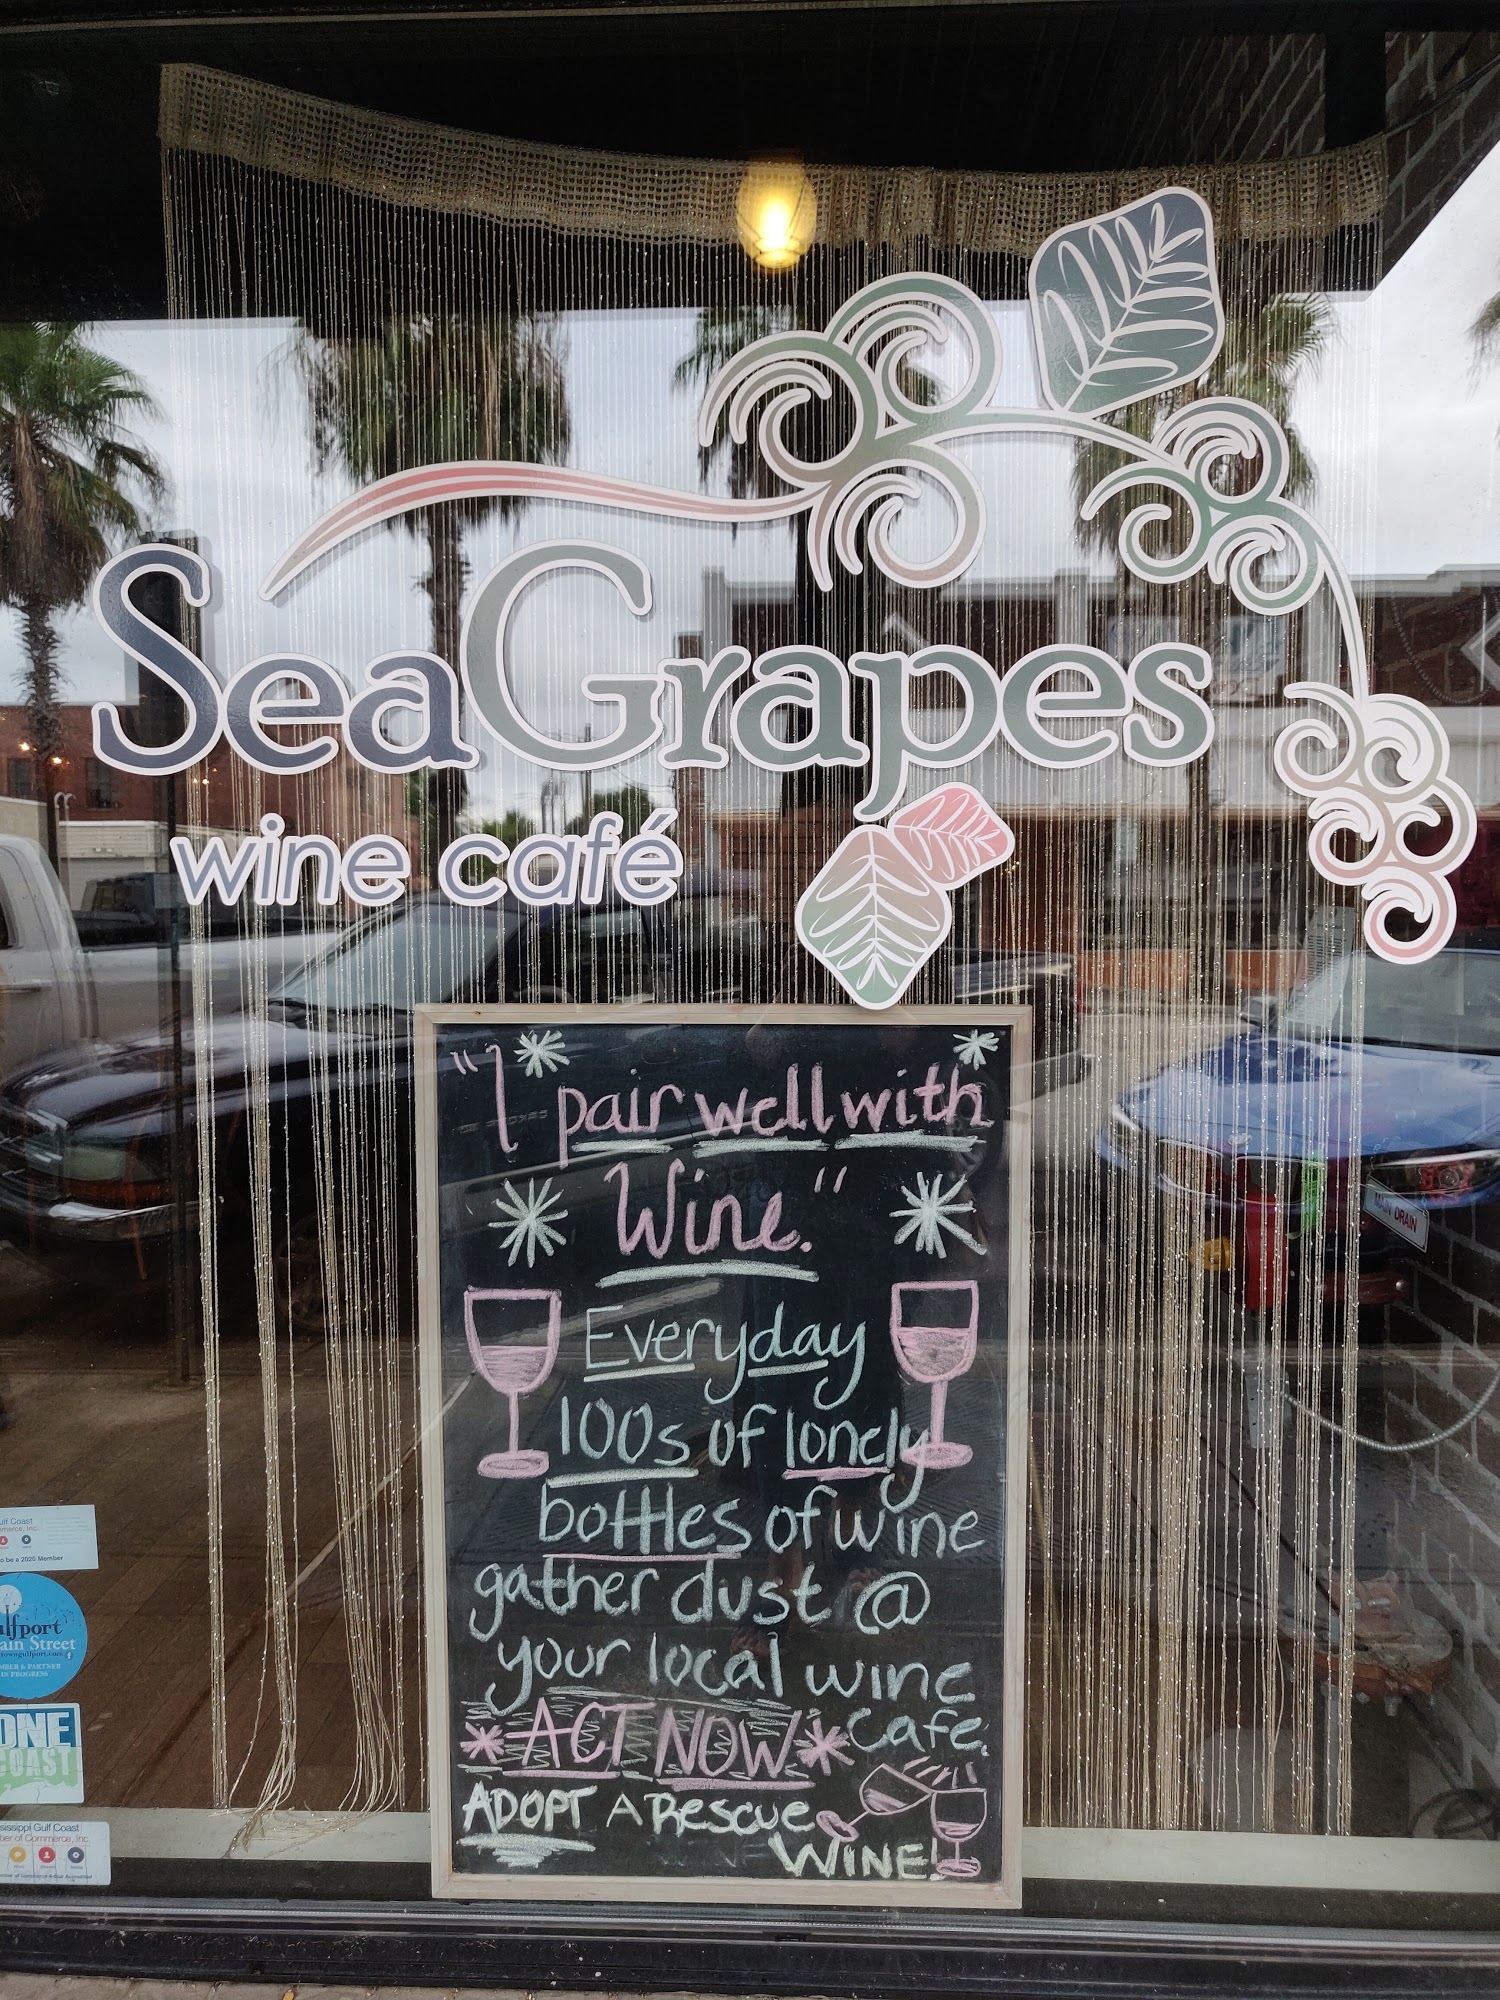 SeaGrapes
wine café
"I pair well with
Wine."
Everyday
100s of lonely
bottles of wine
gather dust @
your local wine
cafe.
ACT NOW
ADOPT A Rescue
WINE!
MAIN DRAIN
ulf Coast
merce, Inc.
o be a 2020 Member
ulfport
ain Street
MBER & PARTNER
IN PROGRESS
ONE
COAST
sissippi Gulf Coast
ber of Commerce, Inc.